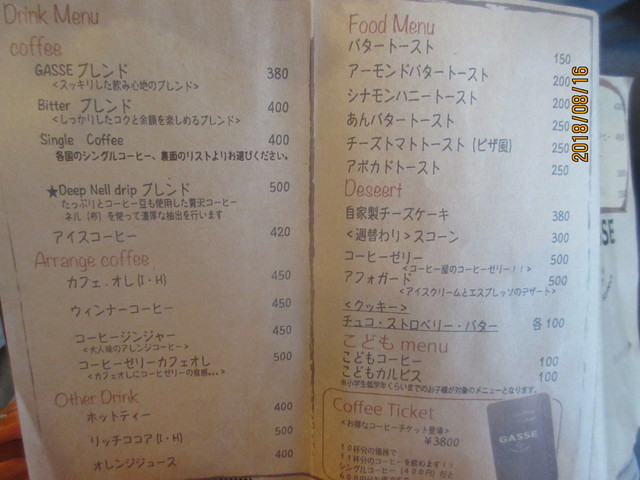 Drink Menu
coffee
GASSE ブレンド 380
<スッキリした飲み心地のブレンド>
Bitter ブレンド 400
<しっかりしたコクと余韻を楽しめるブレンド>
Single Coffee 400
各国のシングルコーヒー、裏面のリストよりお選びください。
★Deep Nell drip ブレンド 500
たっぷりとコーヒー豆も使用した贅沢コーヒー
ネル(布)を使って濃厚な抽出を行います
アイスコーヒー 420
Arrange coffee
カフェ.オレ(I・H) 450
ウィンナーコーヒー 450
コーヒージンジャー 450
<大人味のアレンジコーヒー>
コーヒーゼリーカフェオレ 500
<カフェオレにコーヒーゼリーの食感。。。>
Other Drink
ホットティー 400
リッチココア(I・H) 500
オレンジジュース 400
Food Menu
バタートースト 150
アーモンドバタートースト 200
シナモンハニートースト 200
あんバタートースト 250
チーズトマトトースト(ピザ風) 250
アボカドトースト 250
Deseert
自家製チーズケーキ 380
<週替わり>スコーン 300
コーヒーゼリー 500
<コーヒー屋のコーヒーゼリー!!>
アフォガード 500
<アイスクリームとエスプレッソのデザート>
<クッキー>
チョコ・ストロベリー・バター 各100
こども menu
こどもコーヒー 100
こどもカルピス 100
※小学生低学年くらいまでのお子様が対象のメニューとなります。
Coffee Ticket
<お得なコーヒーチケット登場>
¥3800
10杯分の価格で
11杯分のコーヒーを飲めます!!
シングルコーヒー(400円)だと
GASSE
2019/08/16
SE